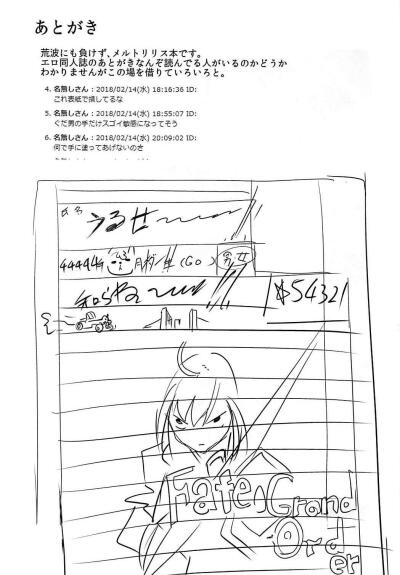 あとがき
荒波にも負けず、メルトリリス本です。
エロ同人誌のあとがきなんぞ読んでる人がいるのかどうか
わかりませんがこの場を借りていろいろと。
4. 名無しさん：2018/02/14(水) 18:16:36 ID:
これ表紙で損してるな
5. 名無しさん：2018/02/14(水) 18:55:07 ID:
ぐだ男の手だけスゴイ敏感になってそう
6. 名無しさん：2018/02/14(水) 20:09:02 ID:
何で手に塗ってあげないのさ
氏名
うるせ〜〜
男女
知らね〜〜
54321
Fate
Grand
Order